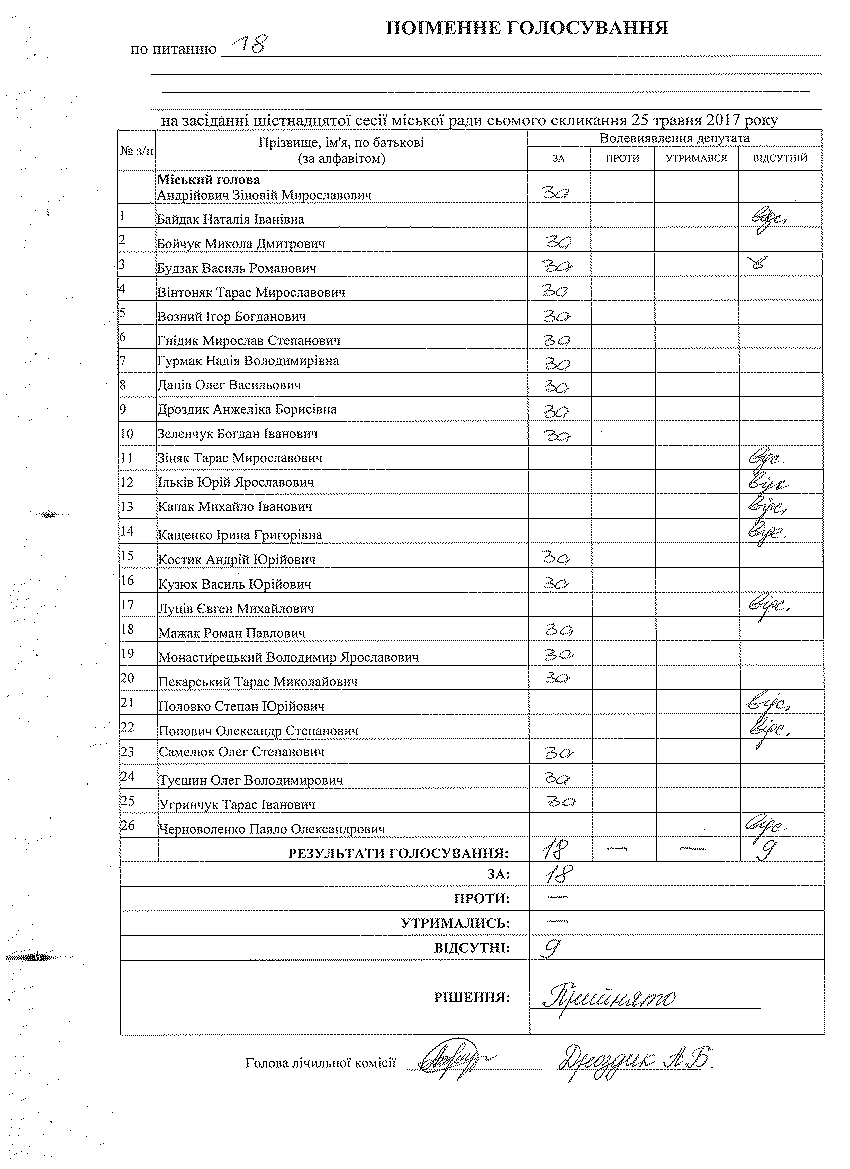 ПОІМЕННЕ ГОЛОСУВАННЯ
по питанню 18
на засіданні шістнадцятої сесії міської ради сьомого скликання 25 травня 2017 року
№ з/п Прізвище, ім'я, по батькові (за алфавітом) Волевиявлення депутата
ЗА ПРОТИ УТРИМАВСЯ ВІДСУТНІЙ
Міський голова
Андрійович Зіновій Мирославович за
1 Байдак Наталія Іванівна відс.
2 Бойчук Микола Дмитрович за
3 Будзак Василь Романович за
4 Вінтоняк Тарас Мирославович за
5 Возний Ігор Богданович за
6 Гнідик Мирослав Степанович за
7 Гурмак Надія Володимирівна за
8 Даців Олег Васильович за
9 Дроздик Анжеліка Борисівна за
10 Зеленчук Богдан Іванович за
11 Зіняк Тарас Мирославович відс.
12 Ільків Юрій Ярославович відс
13 Капак Михайло Іванович відс.
14 Кащенко Ірина Григорівна відс.
15 Костик Андрій Юрійович за
16 Кузюк Василь Юрійович за
17 Луців Євген Михайлович відс.
18 Мажак Роман Павлович за
19 Монастирецький Володимир Ярославович за
20 Пекарський Тарас Миколайович за
21 Половко Степан Юрійович відс.
22 Попович Олександр Степанович відс.
23 Самелюк Олег Степанович за
24 Туєшин Олег Володимирович за
25 Угринчук Тарас Іванович за
26 Черноволенко Павло Олександрович відс.
РЕЗУЛЬТАТИ ГОЛОСУВАННЯ: 18 — — 9
ЗА: 18
ПРОТИ: —
УТРИМАЛИСЬ: —
ВІДСУТНІ: 9
РІШЕННЯ: Прийнято
Голова лічильної комісії Дроздик А.Б.